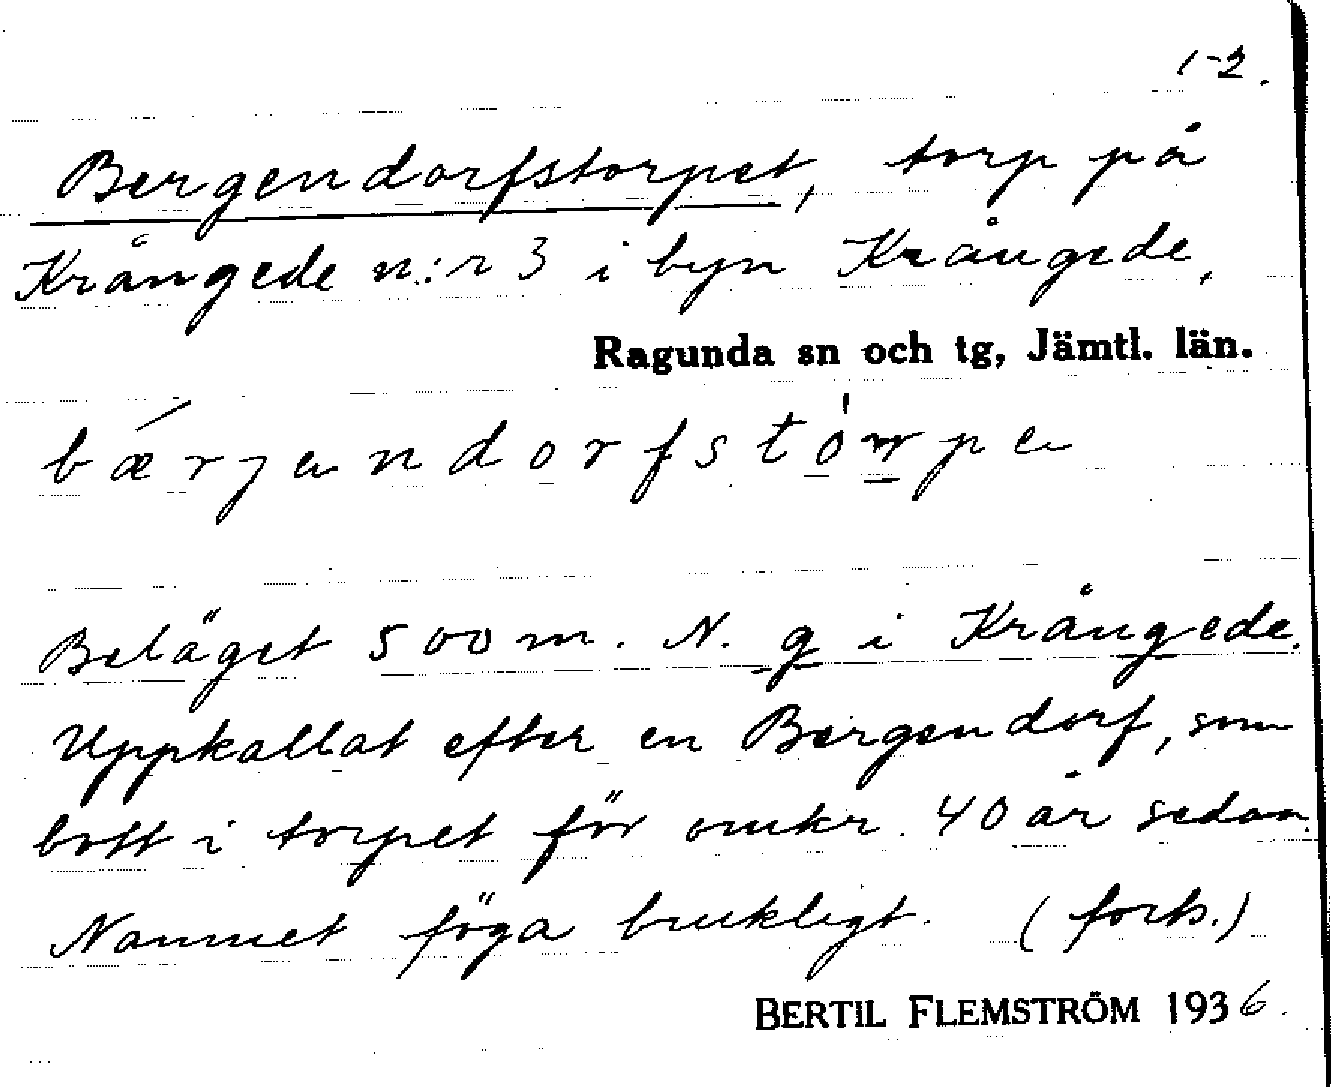 1-2.
Bergendorfstorpet, torp på
Krångede n:r 3 i byn Krångede,
Ragunda sn och tg, Jämtl. län.
Beläget 500 m. N. g i Krångede.
Uppkallat efter en Bergendorf, som
bott i torpet för omkr. 40 år sedan.
Namnet föga brukligt. (forts.)
BERTIL FLEMSTRÖM 1936.